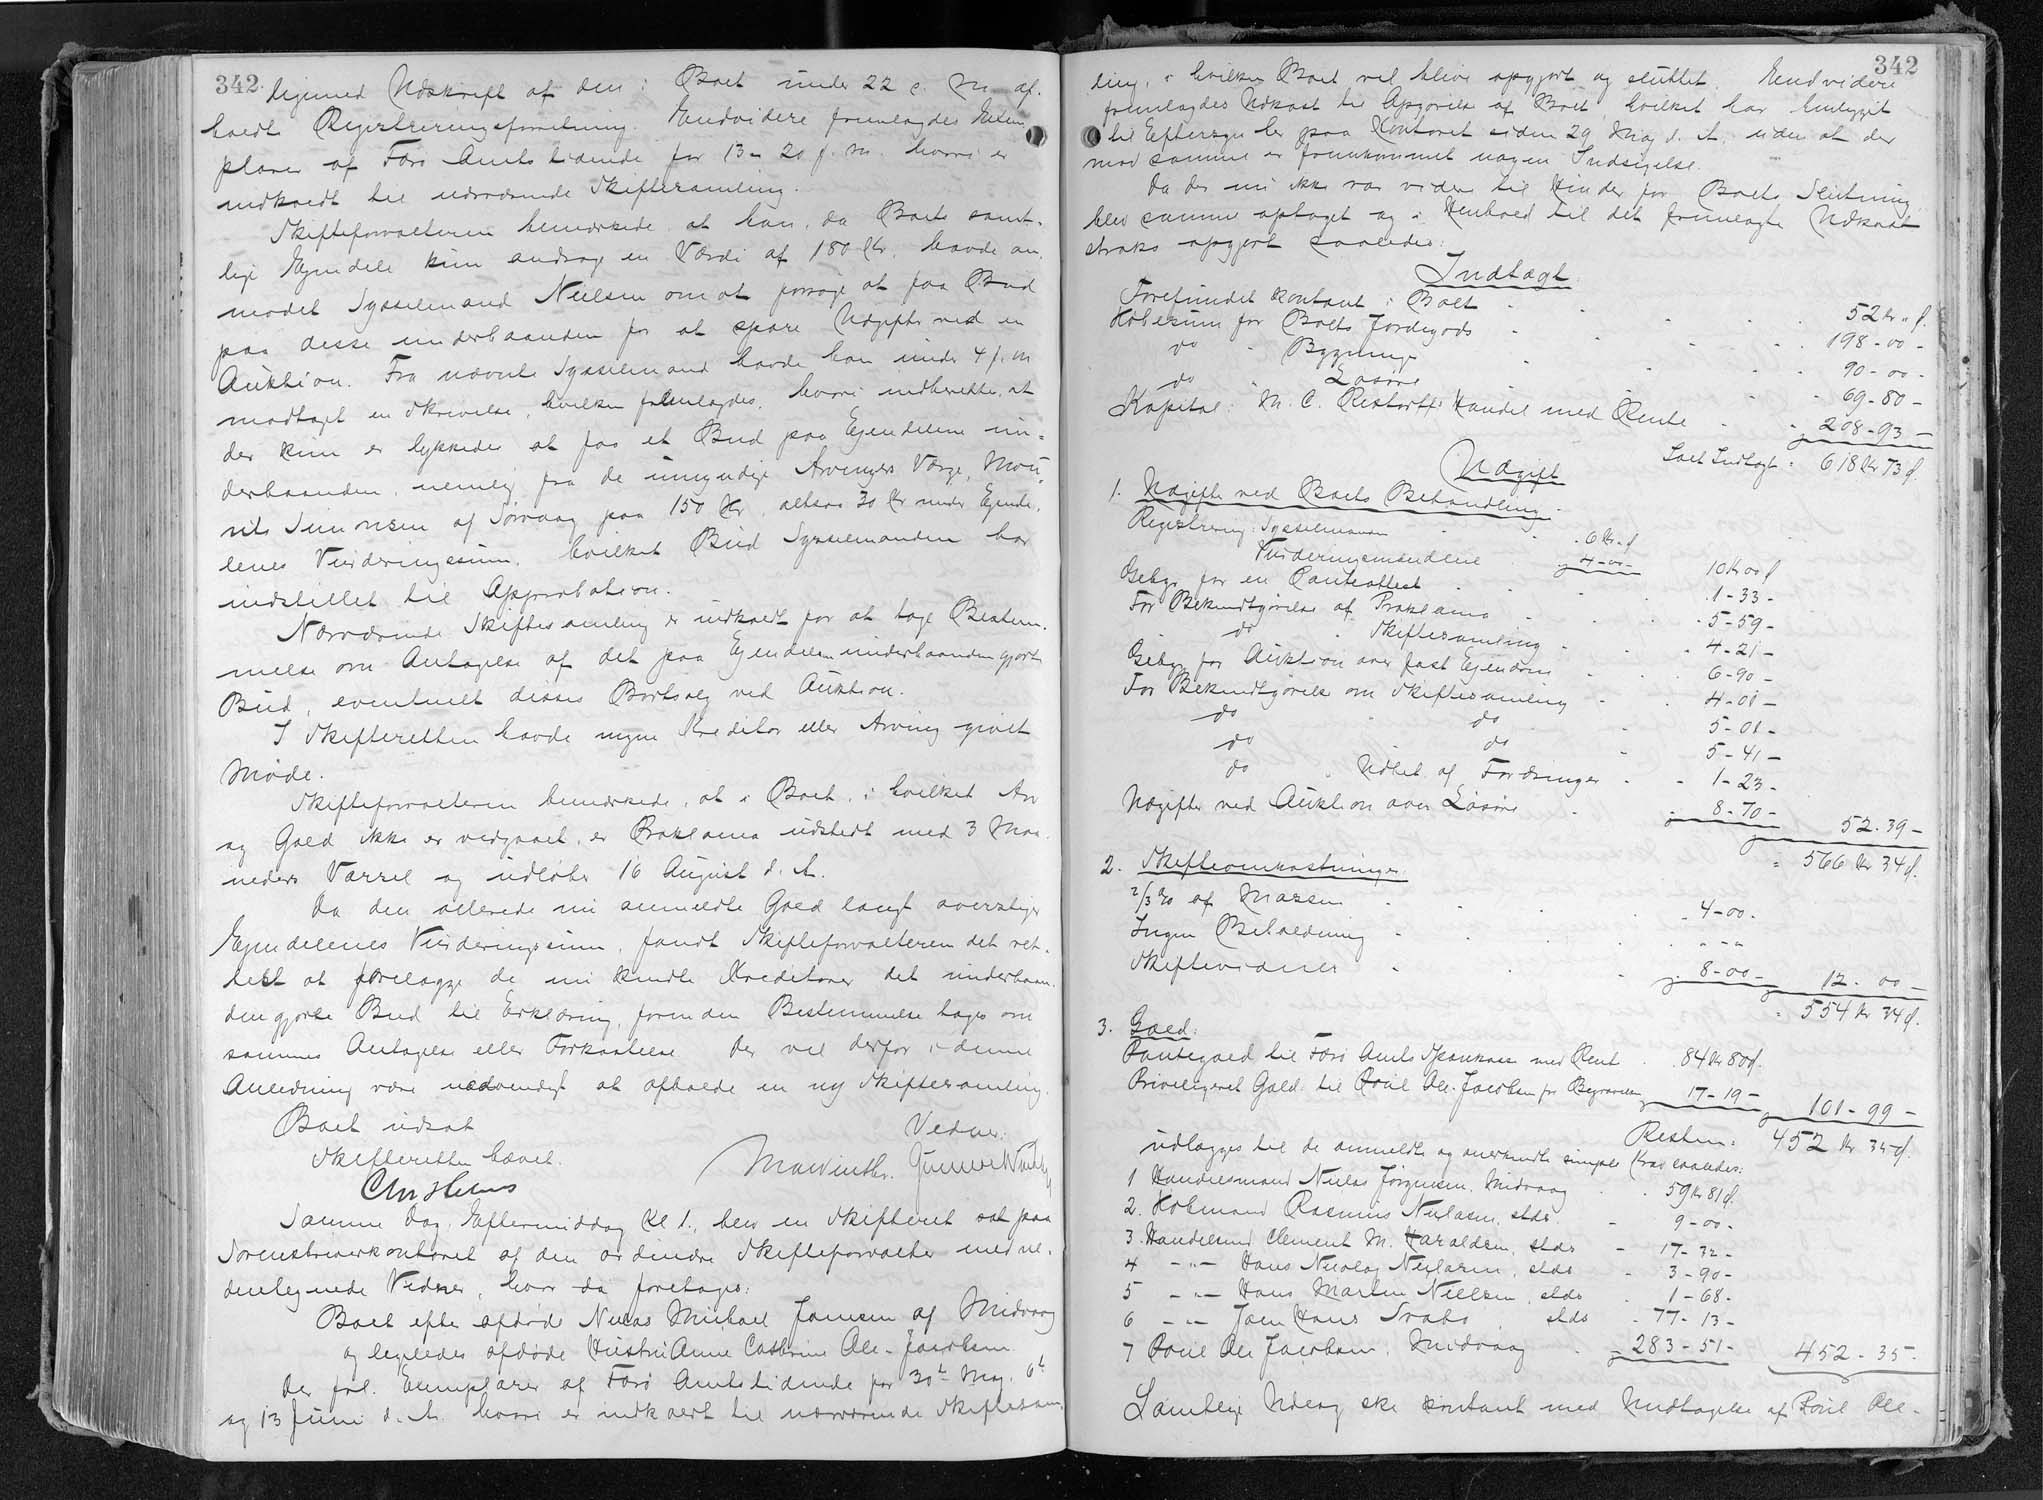 342.
ligemed Udskrift af den i Boet under 22 c. M. af-
holdt Registreringsforretning. Endvidere fremlagdes Exem-
plarer af Færø Amtstidende for 13 - 20 f. M. hvori er
indkaldt til nærværende Skiftesamling.
Skifteforvalteren bemærkede, at han, da Boets samt-
lige Ejendele kun androg en Værdi af 180 Kr. havde an-
modet Sysselmand Nielsen om at forsøge at faa Bud
paa disse underhaanden for at spare Udgifter ved en
Auktion. Fra nævnte Sysselmand havde han under 4 f. M
modtaget en Skrivelse, hvilken fremlagdes, hvori indberettes, at
der kun er lykkedes at faa et Bud paa Ejendelene un-
derhaanden, nemlig fra de umyndige Arvingers Værge, Mou-
rits Simonsen af Sørvaag paa 150 Kr, altsaa 30 Kr under Ejende-
lenes Vurderingssum, hvilket Bud Sysselmanden har
indstillet til Approbation.
Nærværende Skiftesamling er indkaldt for at tage Bestem-
melse om Antagelse af det paa Ejendelene underhaanden gjorte
Bud, eventuelt disses Bortsalg ved Auktion.
I Skifteretten havde ingen Kreditor eller Arving givet
Møde.
Skifteforvalteren bemærkede, at i Boet, i hvilket Arv
og Gæld ikke er vedgaaet, er Proklama udstedt med 3 Maa-
neders Varsel og udløber 16 August d. A.
Da den allerede nu anmeldte Gæld langt overstiger
Ejendelenes Vurderingssum, fandt Skifteforvalteren det ret-
test at forelægge de nu kendte Kreditorer det underhaan-
den gjorte Bud til Erklæring, forinden Bestemmelse tages om
sammes Antagelse eller Forkastelse. Der vil derfor i denne
Anledning være nødvendigt at afholde en ny Skiftesamling.
Boet udsat
Skifteretten hævet.
Vedner:
Samme Dag, Eftermiddag Kl 1., blev en Skifteret sat paa
Sorenskriverkontoret af den ordinære Skifteforvalter med ne-
denlegnede Vidner, hvor da foretages:
Boet efter afdøde Niclas Michael Jansen af Midvaag
og ligeledes afdøde Hustru Anne Cathrine Ole-Jacobsen
Der frl. Exemplarer af Færø Amtstidende for 30te Maj, 6te
og 13 Juni d. A. hvori er indkaldt til nærværende Skiftesam-
342
ling, i hvilken Boet vil blive opgjort og sluttet. Endvidere
fremlagdes Udkast til Opgørelse af Boet, hvilket har henligget
til Eftersyn her paa Kontoret siden 29 Maj d. A. uden at der
mod samme er fremkommet nogen Indsigelse.
Da der nu ikke var videre til Hinder for Boets Slutning,
blev samme optaget og i Henhold til det fremlagte Udkast
straks opgjort saaledes:
Indtægt.
Forefundet kontant i Boet 52 Kr " Ø.
Købesum for Boets Jordegods 198 - 00 -
do - Bygninger 90 - 00 -
do - Løsøre 69 - 80 -
Kapital i M. C. Restorffs Handel med Rente 208 - 93 -
Ialt Indtægt = 618 Kr 73 Ø.
Udgift
1. Udgifter ved Boets Behandling.
Registrering: Sysselmanden 6 Kr - Ø
Vurderingsmændene 4 - 00 - 10 Kr 00 Ø
Gebyr for en Panteattest 1 - 33 -
For Bekendtgørelse af Proklama 5 - 59 -
do - Skiftesamling 4 - 21 -
Gebyr for Auktion over fast Ejendom 6 - 90 -
For Bekendtgørelse om Skiftesamling 4 - 01 -
do " do 5 - 01 -
do do 5 - 41 -
do Udbet. af Fordringer 1 - 23 -
Udgifter ved Auktion over Løsøre 8 - 70 - 52 . 39 -
= 566 Kr 34 Ø.
2. Skifteomkostninger.
2/3 % af Massen 4 - 00 -
Ingen Behæftning " " "
Skiftevidner 8 - 00 - 12 . 00 -
= 554 Kr 34 Ø.
3. Gæld:
Pantegæld til Færø Amts Sparekasse med Rente 84 Kr 80 Ø.
Privilegeret Gæld til Poul Ole-Jacobsen for Begravelsen 17 - 19 - 101 - 99 -
Resten: 452 Kr 35 Ø.
udlægges til de anmeldte og anerkendte simple Krav saaledes:
1 Handelsmand Niclas Jørgensen, Midvaag 59 Kr 81 Ø.
2. Købmand Rasmus Nielsen, stds. 9 - 00 -
3. Handelsmd Clement M. Haraldsen, stds 17 - 32 -
4 - " - Hans Nicolaj Niclasen, stds 3 - 90 -
5 - " - Hans Martin Nielsen, stds 1 - 68 -
6 - " - Joen Hans Svabo, stds 77 - 13 -
7 Poul Ole Jacobsen, Midvaag 283 - 51 - 452 - 35 -
Samtlige Udlæg ske kontant med Undtagelse af Poul Ole-